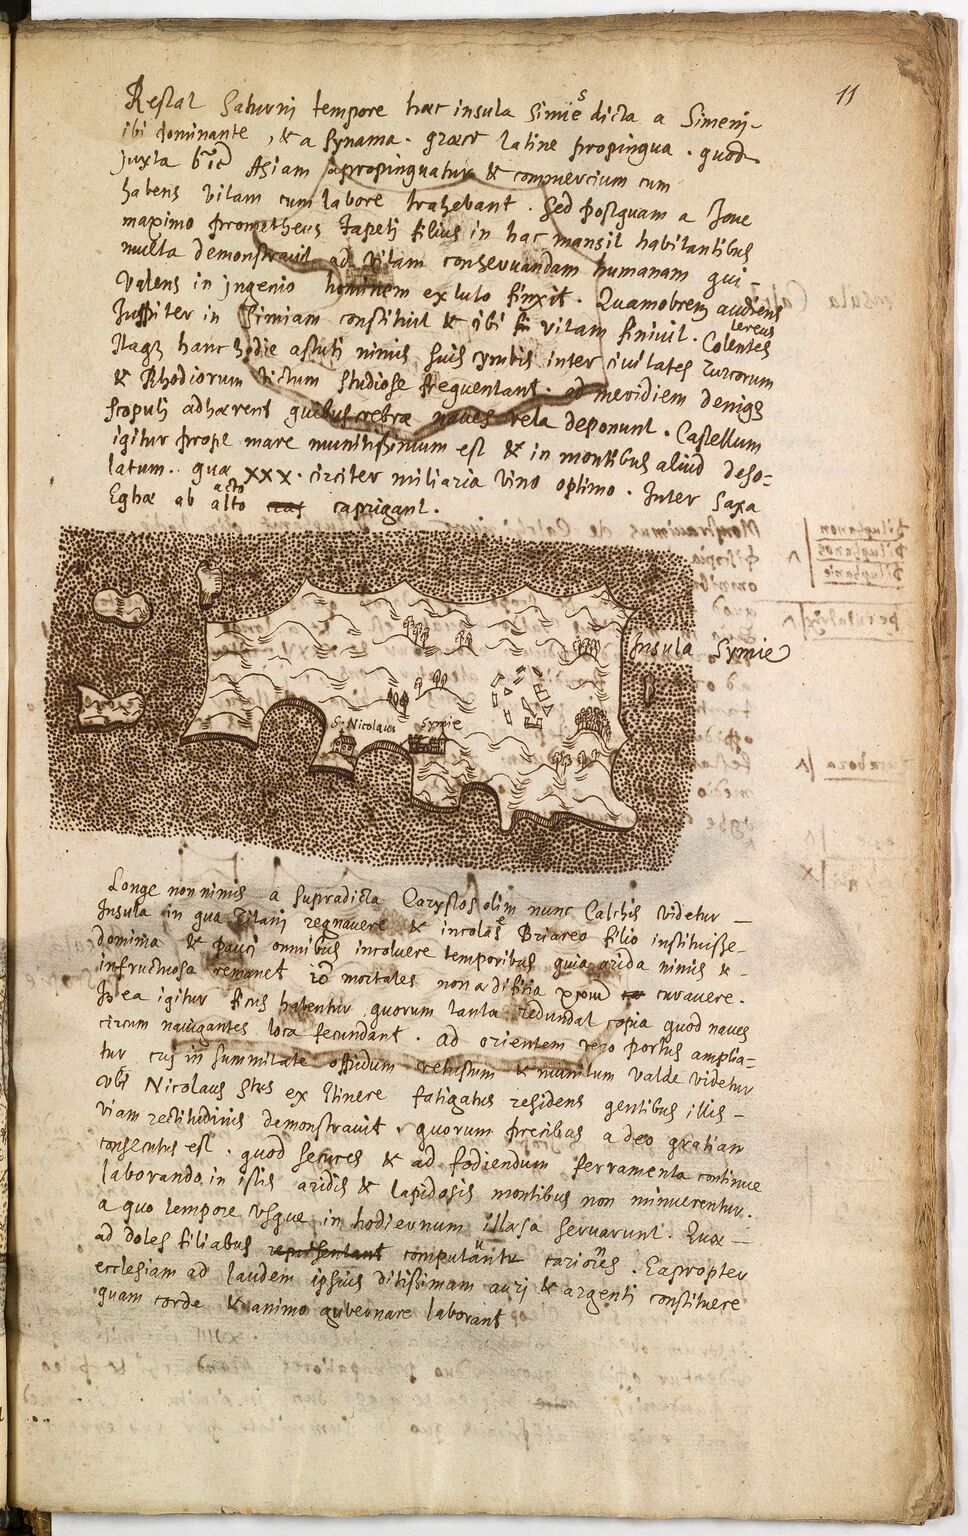 11
Restat Saturni tempore haec insula Simies dicta a Simeni-
ibi dominante, & a Synama. graece latine propinqua. quod
juxta Asiam apropinquatur & commercium cum
habens vitam cum labore trahebant. Sed postquam a Jove
maximo prometheus Iapeti filius in hac mansit habitantibus
multa demonstravit ad vitam conservandam humanam qui-
valens in ingenio hominem ex luto finxit. Quamobrem audiens
Juppiter in Simiam constituit & ibi vitam finivit. Colentes
Itaqz hanc hodie astuti nimis suis cymbis inter civitates Turcorum
& Rhodiorum victum studiose frequentant. ad meridiem deniqz
scopuli adhaerent quibus crebrae naves vela deponunt. Castellum
igitur prope mare munitissimum est & in montibus aliud deso=
latum. quae XXX. circiter miliaria vino optimo. Inter saxa
Eghae ab alto caprizant.
acto
Insula Symie
S. Nicolaus
Symie
Longe non nimis a supradicta Carystos olim nunc Calchis videtur —
Insula in qua Titani regnavere & incolas Briareo filio instituisse-
domima & pauci omnibus incoluere temporibus quia arida nimis & -
infructuosa remanet mortales non curavere.
In ea igitur ficus habentur quorum tanta redundat copia quod naves
circum navigantes loca fecundant. ad orientem vero portus amplia=
tur cuj in summitate oppidum vetustum & munitum valde videtur
ubi Nicolaus Stus ex Itinere fatigatus residens gentibus illis -
viam rectitudinis demonstravit. quorum precibus a deo gratiam
consecutus est. quod secures & ad fodiendum ferramenta continue
laborando in istis aridis & lapidosis montibus non minuerentur.
a quo tempore usque in hodiernum illasa servarunt. Quae —
ad dotes filiabus computantur cariores. Eapropter
ecclesiam ad laudem ipsius ditissimam auri & argenti constituere
quam corde & animo gubernare laborant